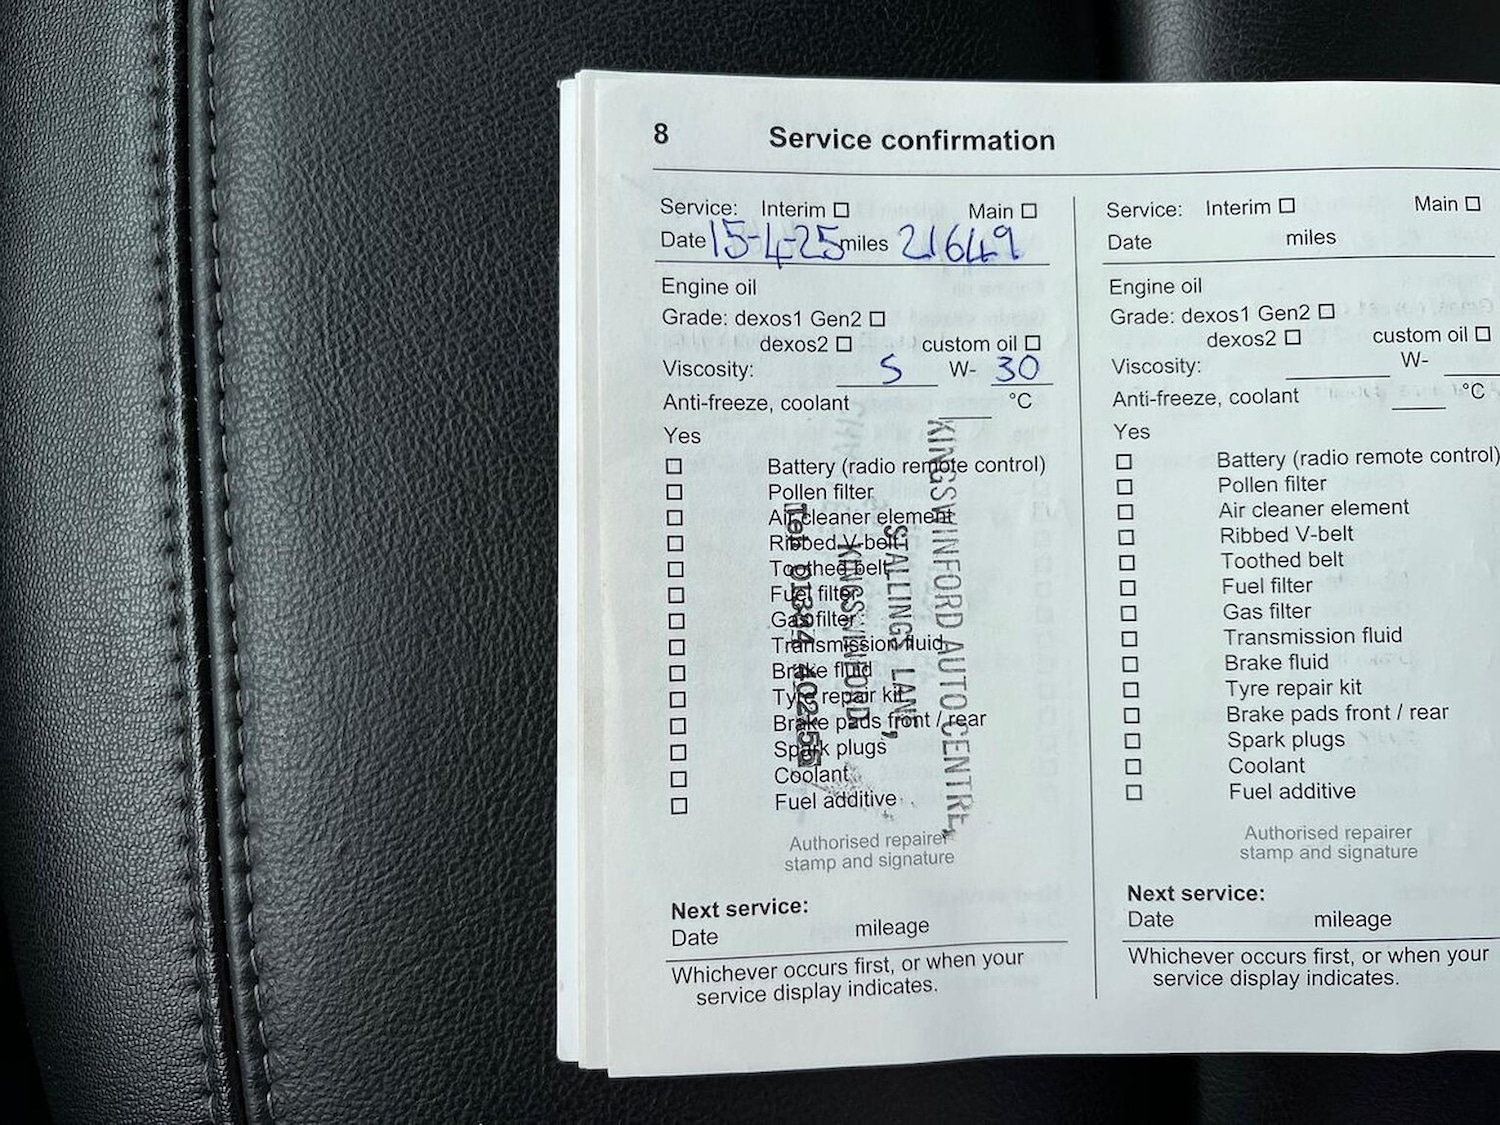 8 Service confirmation
Service: Interim ☐ Main ☐
Date 15-4-25 miles 21649
Engine oil
Grade: dexos1 Gen2 ☐
dexos2 ☐ custom oil ☐
Viscosity: 5 W- 30
Anti-freeze, coolant °C
Yes
☐ Battery (radio remote control)
☐ Pollen filter
☐ Air cleaner element
☐ Ribbed V-belt
☐ Toothed belt
☐ Fuel filter
☐ Gas filter
☐ Transmission fluid
☐ Brake fluid
☐ Tyre repair kit
☐ Brake pads front / rear
☐ Spark plugs
☐ Coolant
☐ Fuel additive
KINGSWINFORD AUTO CENTRE,
STALLINGS LANE,
KINGSWINFORD
Tel: 01384 402455
Authorised repairer
stamp and signature
Next service:
Date mileage
Whichever occurs first, or when your
service display indicates.
Service: Interim ☐ Main ☐
Date miles
Engine oil
Grade: dexos1 Gen2 ☐
dexos2 ☐ custom oil ☐
Viscosity: W-
Anti-freeze, coolant °C
Yes
☐ Battery (radio remote control)
☐ Pollen filter
☐ Air cleaner element
☐ Ribbed V-belt
☐ Toothed belt
☐ Fuel filter
☐ Gas filter
☐ Transmission fluid
☐ Brake fluid
☐ Tyre repair kit
☐ Brake pads front / rear
☐ Spark plugs
☐ Coolant
☐ Fuel additive
Authorised repairer
stamp and signature
Next service:
Date mileage
Whichever occurs first, or when your
service display indicates.